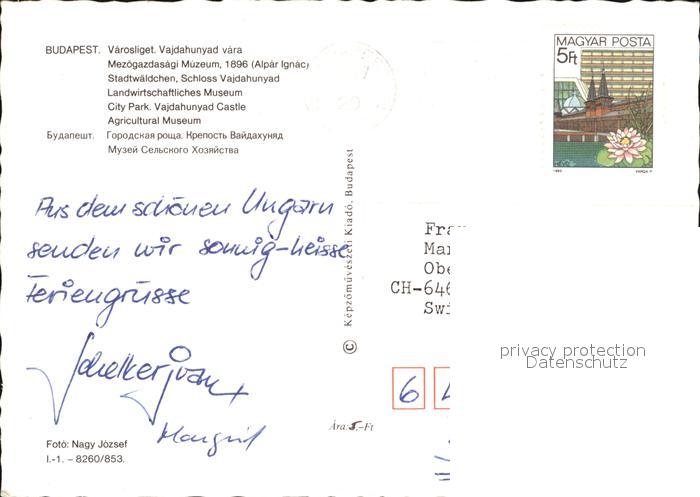 BUDAPEST. Városliget. Vajdahunyad vára
Mezőgazdasági Múzeum, 1896 (Alpár Ignác)
Stadtwäldchen, Schloss Vajdahunyad
Landwirtschaftliches Museum
City Park. Vajdahunyad Castle
Agricultural Museum
Будапешт. Городская роща. Крепость Вайдахуняд
Музей Сельского Хозяйства
MAGYAR POSTA
5Ft
1983 VARGA P.
20
Aus dem schönen Ungarn
senden wir sonnig-heisse
Feriengrüsse
Margrit
Fotó: Nagy József
I.-1. – 8260/853.
© Képzőművészeti Kiadó, Budapest
Ára: 5.–Ft
Fra
Mar
Obe
CH-646
Swi
6 4
privacy protection
Datenschutz